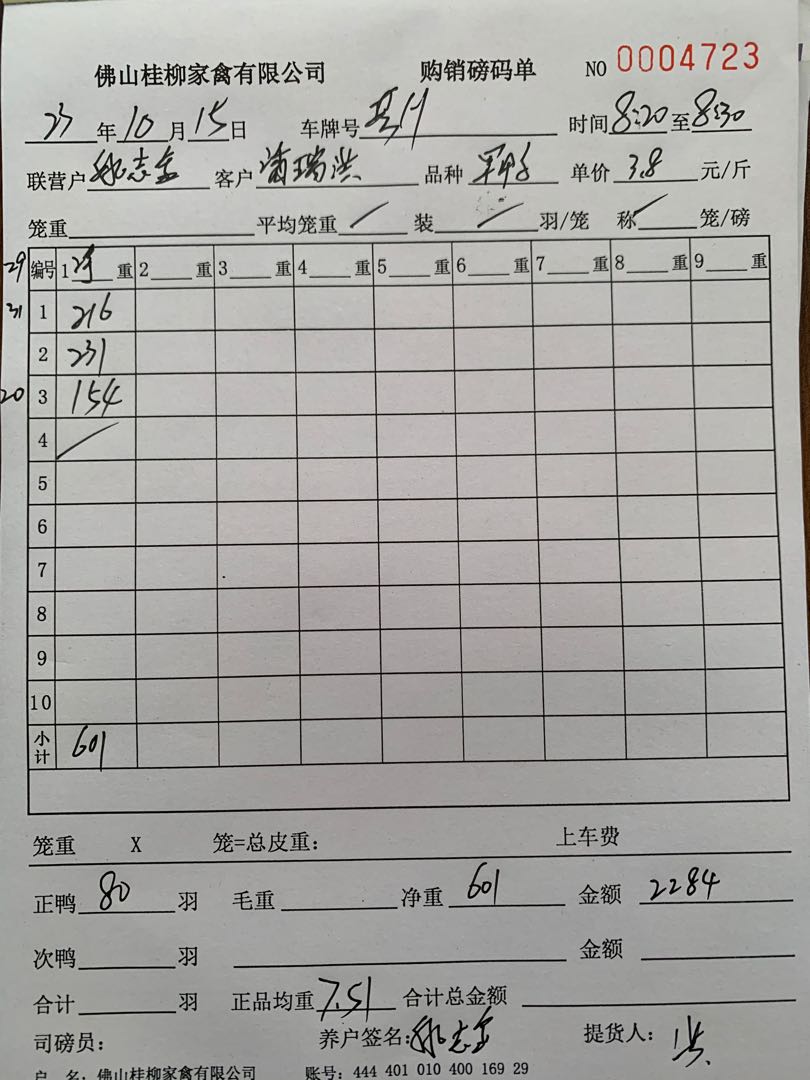 佛山桂柳家禽有限公司 购销磅码单 NO 0004723
23年10月15日 车牌号 时间8:20至8:30
联营户 姚志金 客户 蒲瑞洪 品种 单价 3.8 元/斤
笼重 平均笼重 / 装 / 羽/笼 称 / 笼/磅
29 编号 1 净 重 2 重 3 重 4 重 5 重 6 重 7 重 8 重 9 重
31 1 216
2 231
20 3 154
4 /
5
6
7
8
9
10
小计 601
笼重 X 笼=总皮重: 上车费
正鸭 80 羽 毛重 净重 601 金额 2284
次鸭 羽 金额
合计 羽 正品均重 7.51 合计总金额
司磅员: 养户签名: 姚志金 提货人: 洪
户 名: 佛山桂柳家禽有限公司 账号: 444 401 010 400 169 29